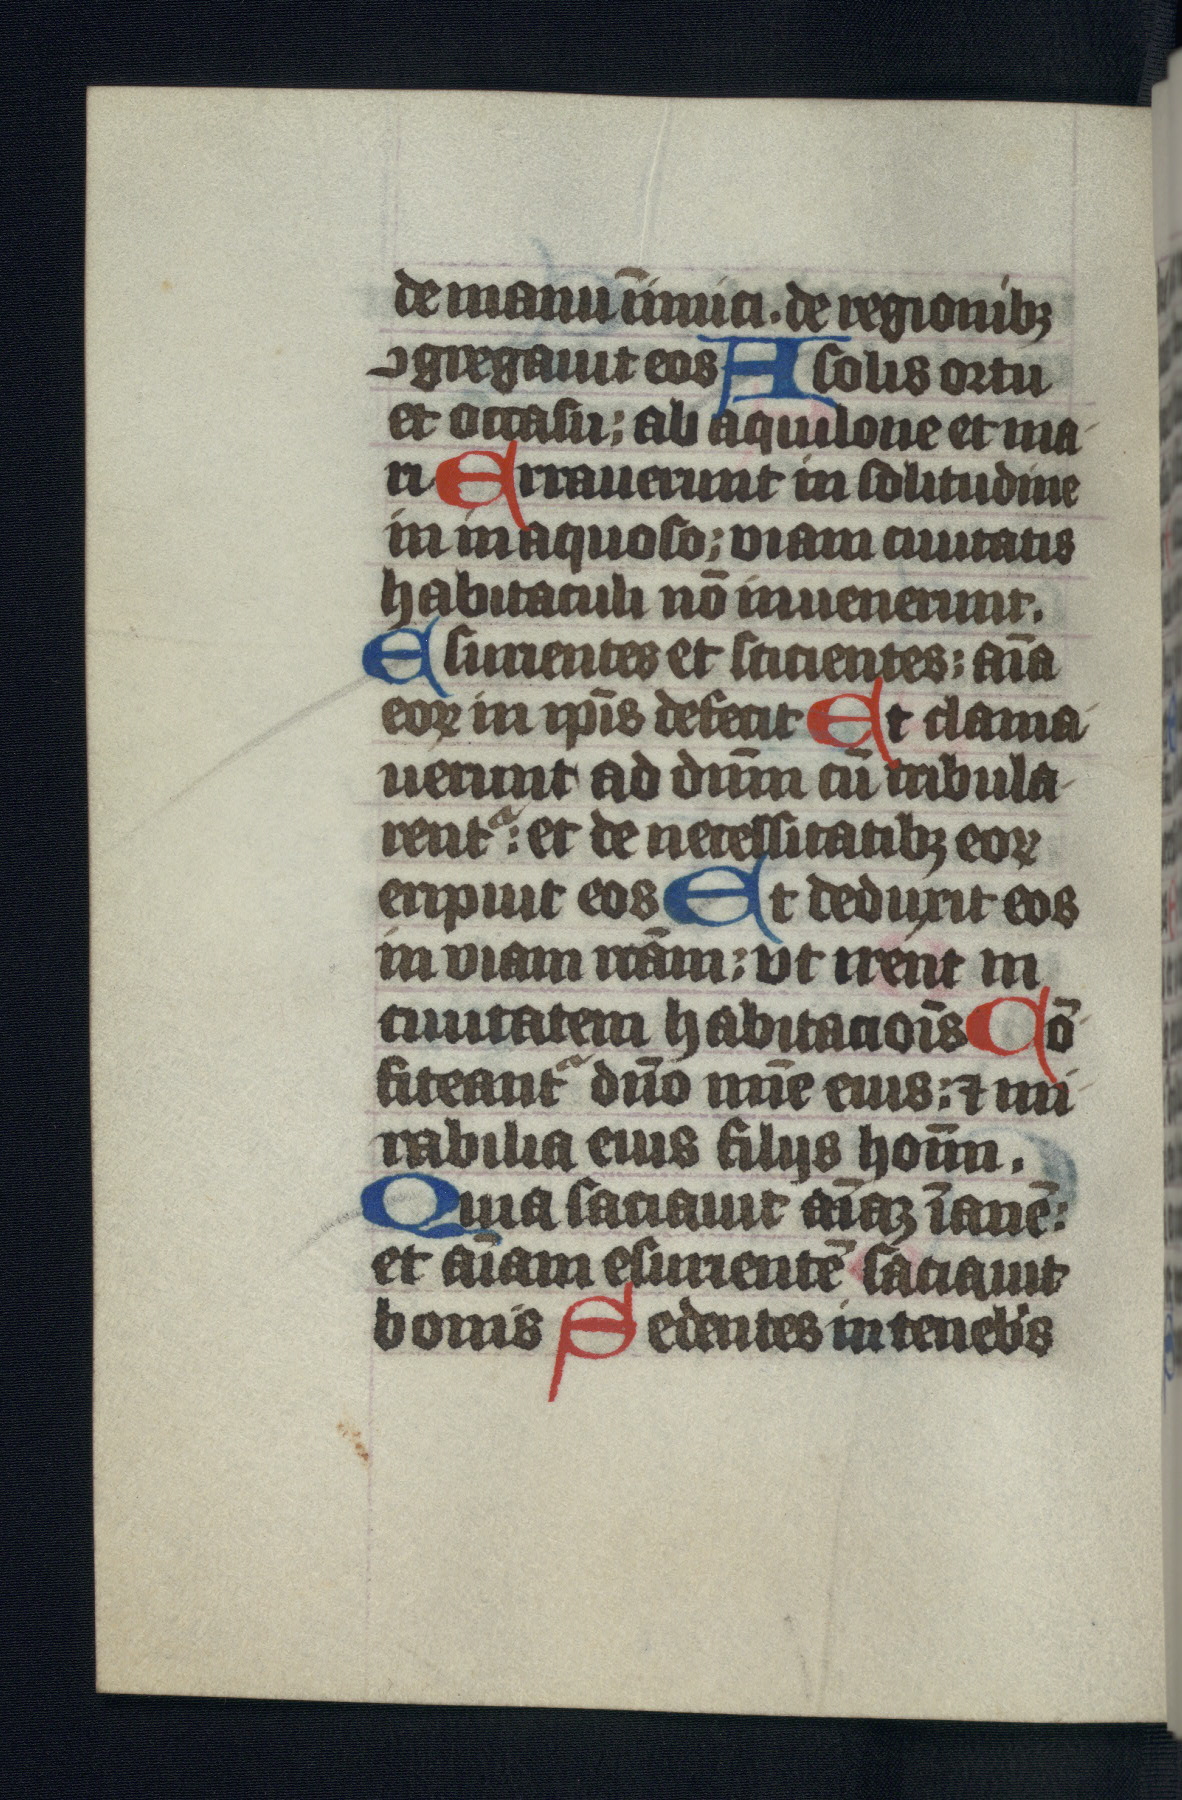 de manu īimici. de regionibꝫ
ꝯgregauit eos A solis ortu
et occasu; ab aquilone et ma-
ri Errauerunt in solitudine
in inaquoso; viam ciuitatis
habitaculi nō inuenerunt.
Esurientes et sicientes; aīa
eoꝝ in ip̄is defecit Et clama-
uerunt ad dn̄m cū tribula-
rentᵃ; et de necessitatibꝫ eoꝝ
eripuit eos Et deduxit eos
in viam rc̄am; vt irent in
ciuitatem habitacioīs Cō-
fiteantᵃ dn̄o mīe eius; ⁊ mi-
rabilia eius filijs hoīm.
Quia saciauit aīaꝫ īanē;
et aīam esurientē saciauit
bonis Sedentes in tenebˀs